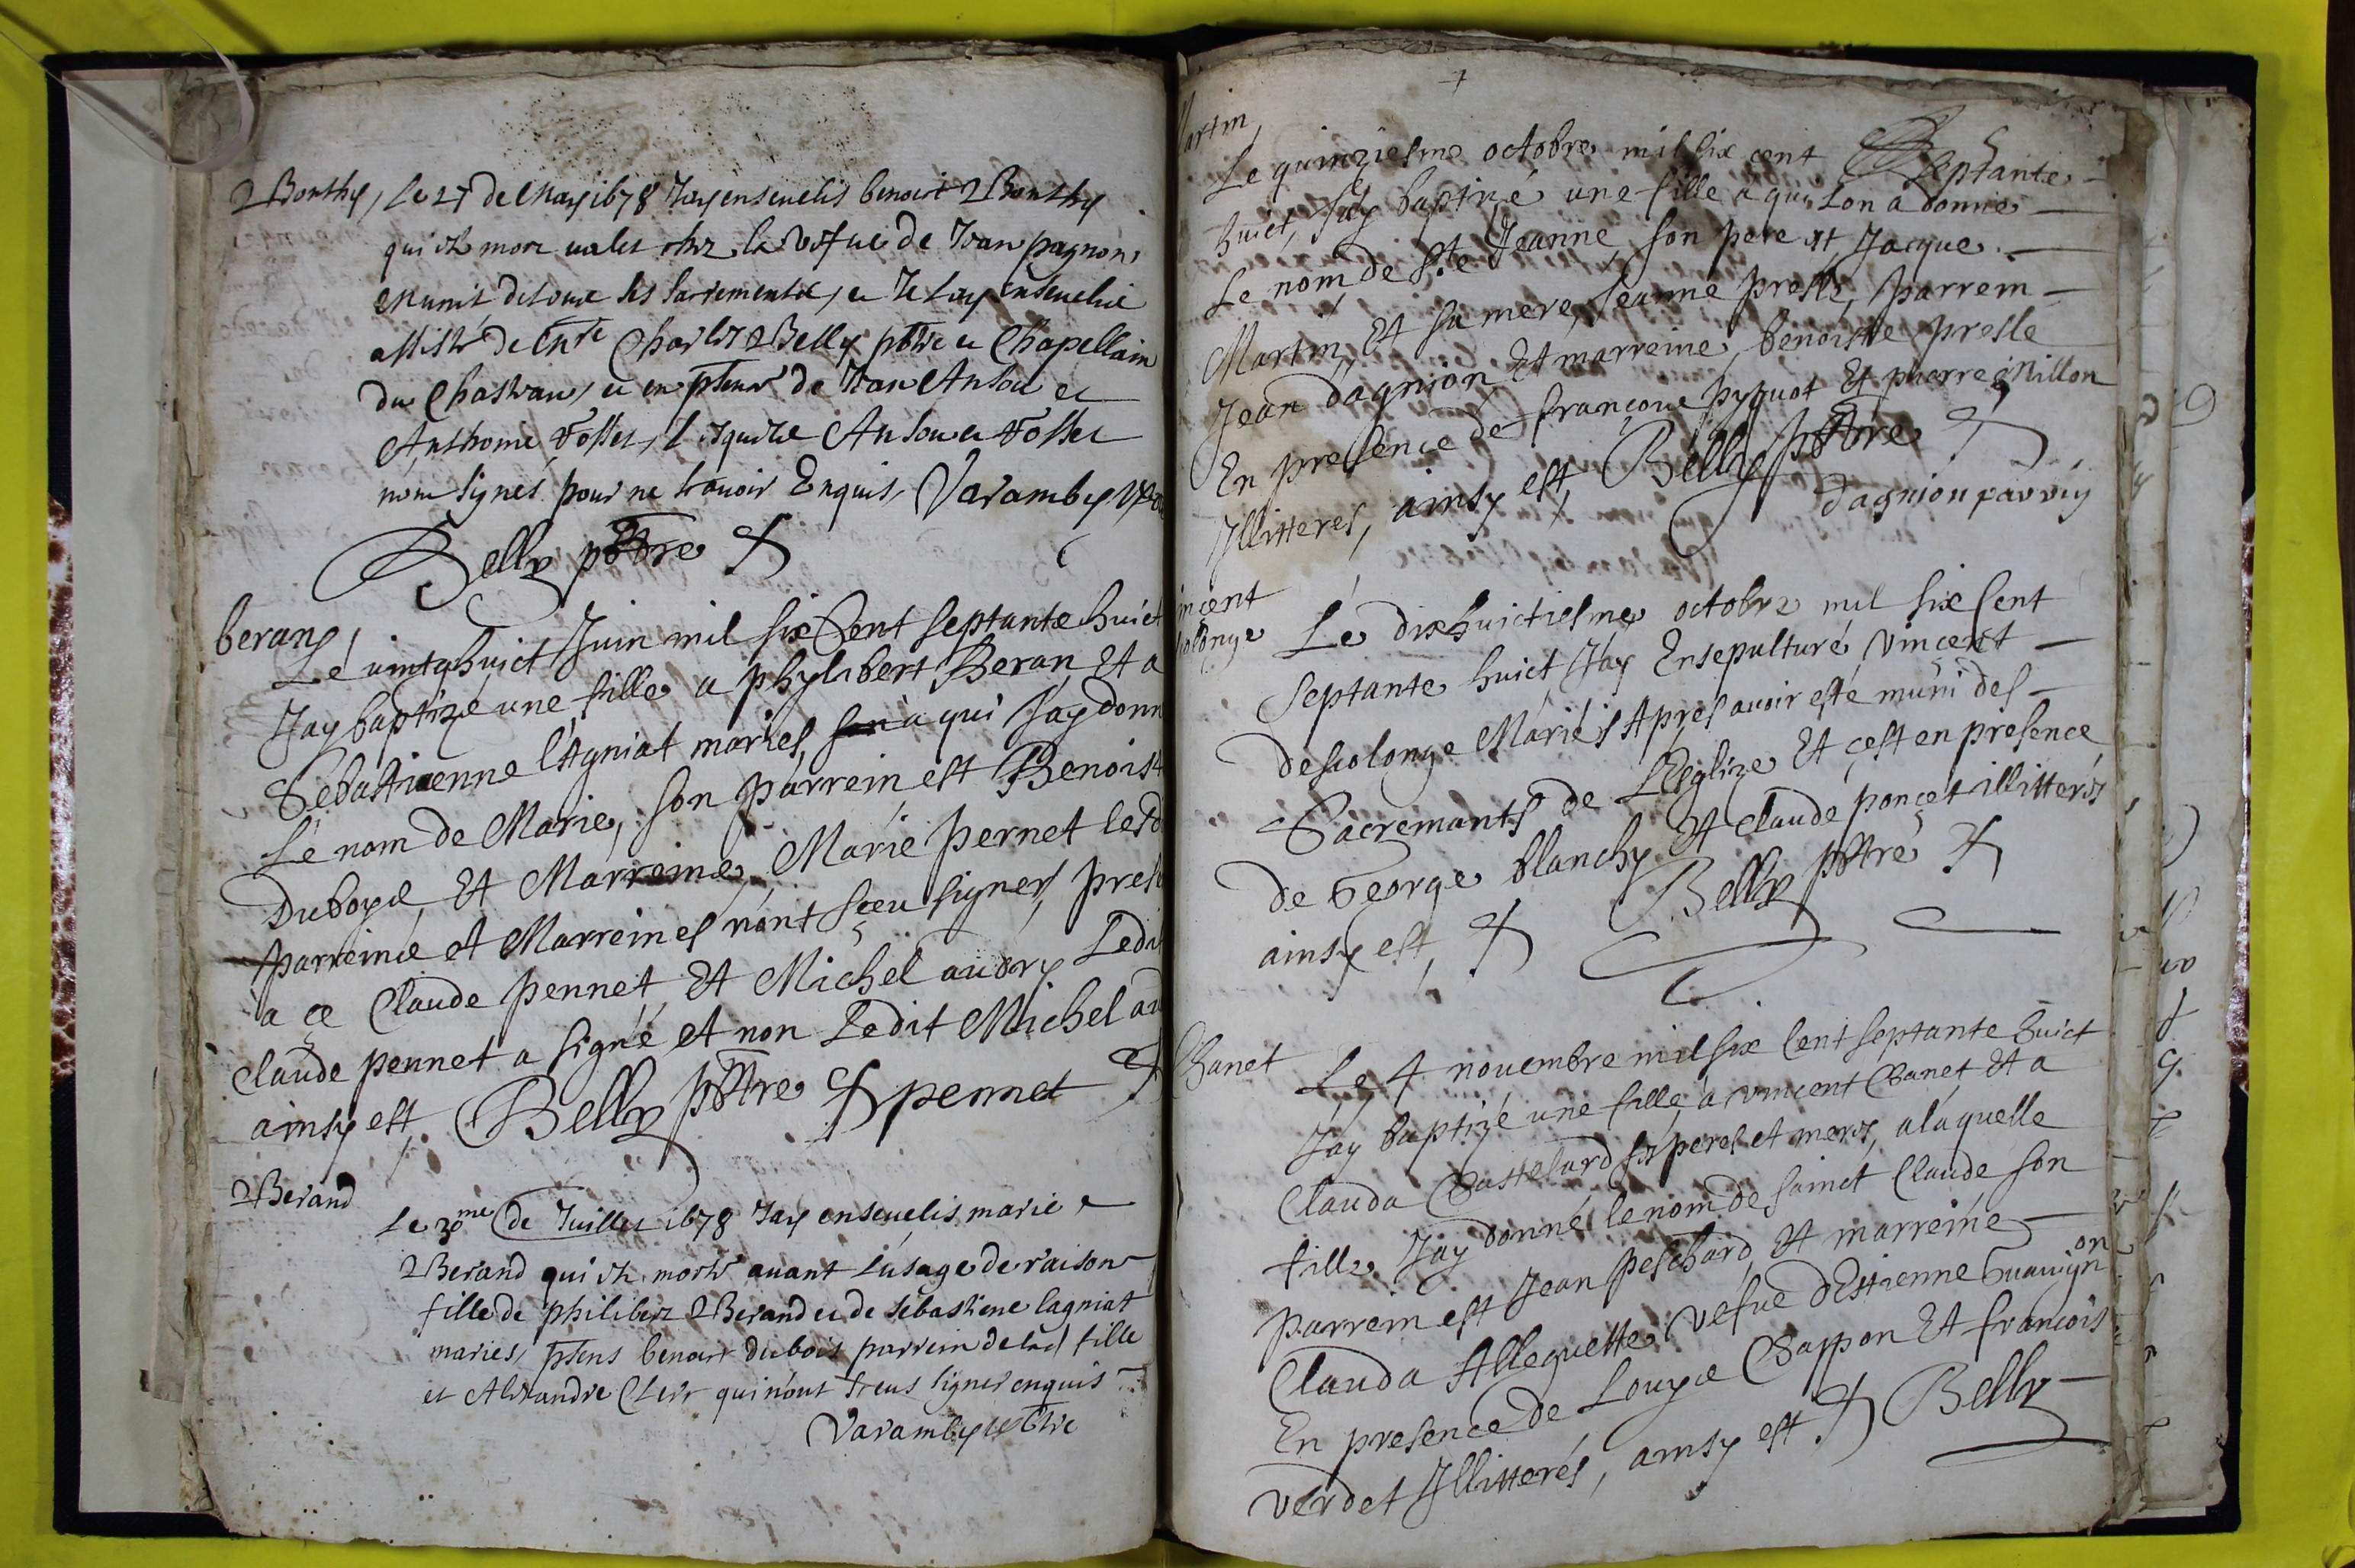 Bonthy, Le 27 de May 1678 Jay enseuelis benoit Bonthy
qui est mort valet chez la vefue de Jean pagnon,
Munit de tous les sacrements, et Je lay Enseuelie
assisté de Charles Belly pbtre et Chapellain
du Chasteau, et en pnce de Jean Ansou et
Anthoine Fosset, lesquels Ansou et Fosset
nont signés pour ne scauoir Enquis, Varamby
Belly pbtre
berang,
Le vintqhuict Juin mil six Cent septante huict
Jay baptizé une fille a phylibert Beran Et a
Sebastienne lAgniat mariés a qui Jay donn
Le nom de Marie, son parrein est Benoist
Duboys, Et Marreine, Marie pernet lesd
parreins et Marreines nont sceu signer, pres
a ce Claude pennet Et Michel audry Ledit
Claude pennet a signé et non Ledit Michel au
ainsy est, Belly pbtre pennet
Berand
Le 30me de Juillet 1678 Jay enseuelis marie
Berand qui est morte auant lusage de raison
fille de philibert Berand et de sebastiene lagniat
mariés, pnts benoit dubois parrein de lad fille
et Alexandre Clerc qui nont sceus signer enquis
Varamby pbtre
artin,
Le quinziesme octobre mil six cent Septante
huict, Jay baptizé une fille a qui Lon a donné
Le nom de Ste Jeanne, son pere est Jacque
Martin, Et sa mere, Jeanne presle, parrein
Jean dagnion Et marreine, benoiste presle
En presence de francoue pyquot Et pierre Millon
Jllitteres, ainsy est, Belly pbtre
Dagnion parrin
incent
olonge Le dixhuictiesme octobre mil six Cent
Septante huict Jay Ensepulturé, Vincent
descolonge Mariés Apres auoir esté muni des
Sacremants de LEglize Et c'est en presence
de George blanchy Et Claude poncet illitterés
ainsy est, Belly pbtre
Chanet Le 4 nouembre mil six Cent septante huict
Jay baptizé une fille a vincent Chanet Et a
Clauda Chastelard ses peres et meres, alaquelle
fille Jay donné le nom de sainct Claude son
parrein est Jean peschard, Et marreine
Clauda Alleguette vefue dEstienne
En presence de Louys Chappon Et francois
Verdet Jllitterés, ainsy est Belly